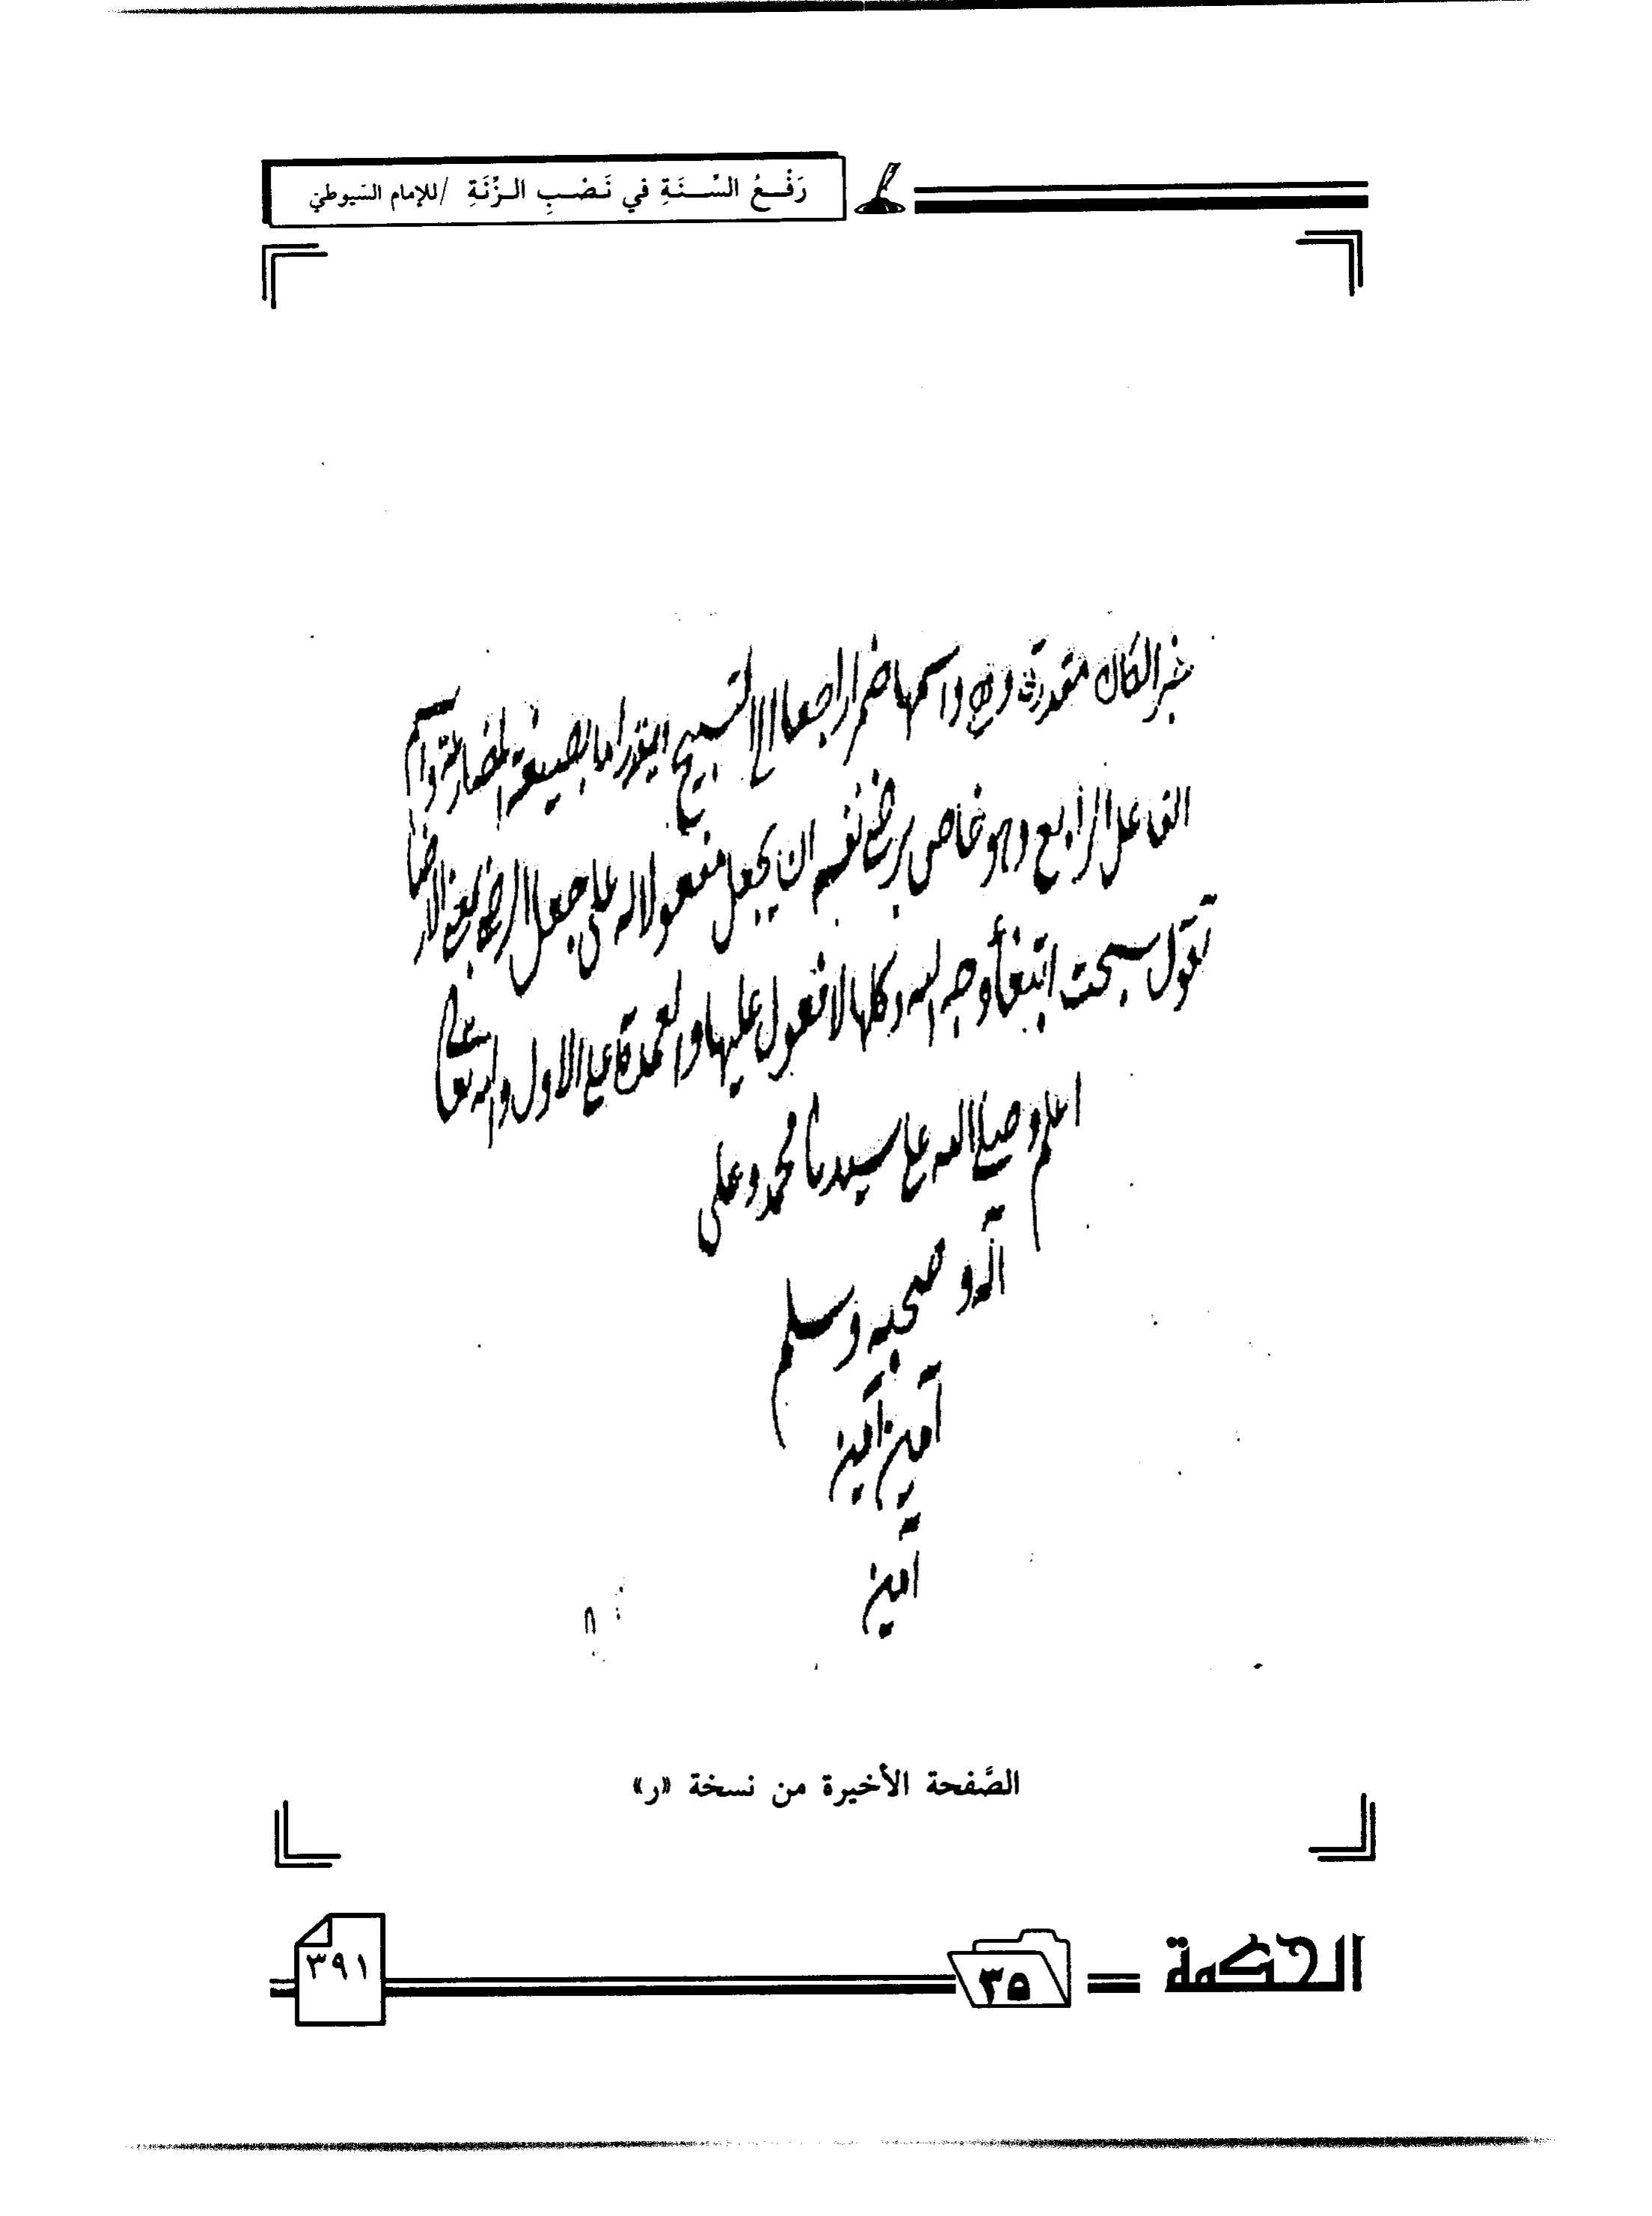 رَفْـعُ السِّـنَـةِ في نَـصْـبِ الـزِّنَـةِ / للإمام السّيوطيّ
خبر الكان مقدرة هي واسمها ضمير راجعا الى التسبيح اما بصيغة المضارعة واسم
الفاعل الرابع وهو خاص برضى نفسه ان يجعل مفعولا له على جعل الرضى بمعنى الارضا
تقول سبحت ابتغأ وجه الله وكلها لا معول عليها والعمدة على الاول والله تعالى
اعلم وصلى الله على سيدنا محمد وعلى
آله وصحبه وسلم
آمين آمين
آمين
الصَّفحة الأخيرة من نسخة «ر»
الحكمة ٣٥ ٣٩١